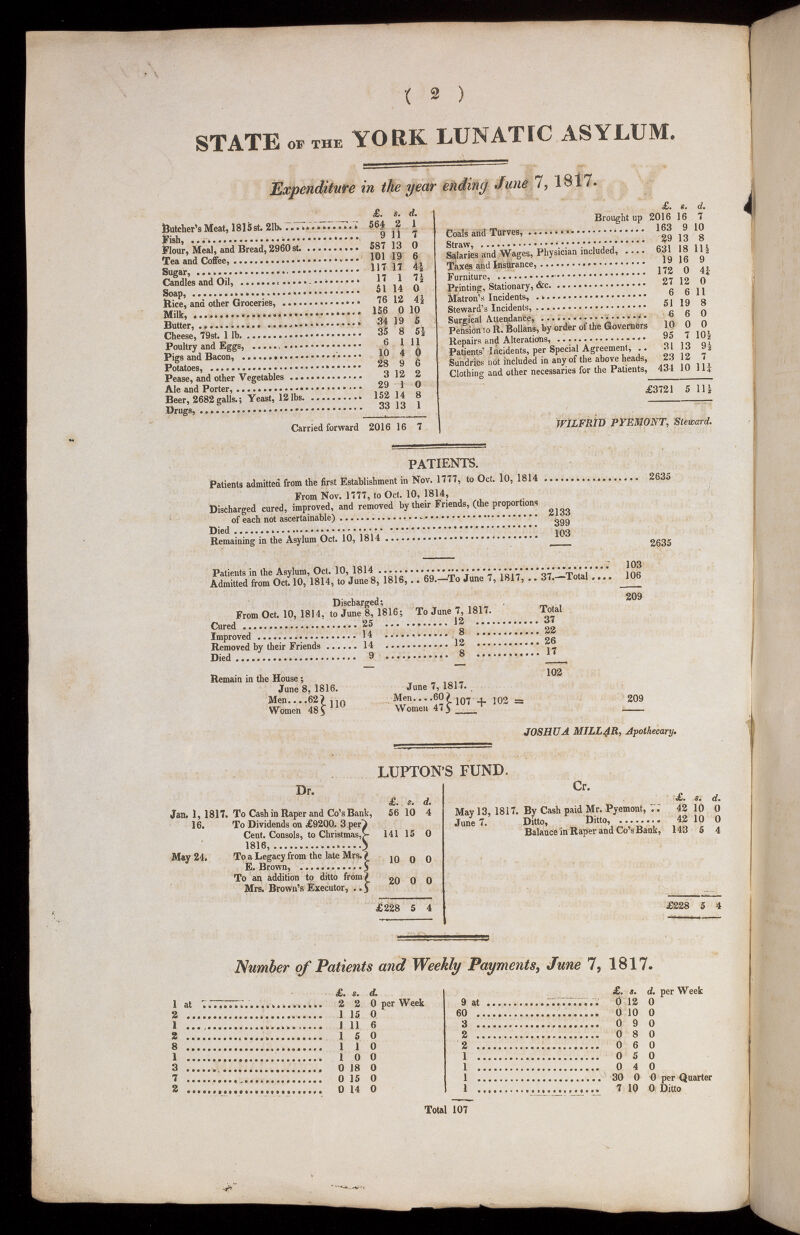 ( 2 )
STATE OF THE YORK LUNATIC ASYLUM.
Expenditure in the year ending June 7, 1817.
£. s. d.
Butcher's Meat, 1815 st. 2lb. 564 2 1
Fish, 9 11 7
Flour, Meal, and Bread, 2960 st. 587 13 0
Tea and Coffee, 101 19 6
Sugar, 117 17 4½
Candles and Oil, 17 1 7½
Soap, 51 14 0
Rice, and other Groceries, 76 12 4½
Milk, 156 0 10
Butter, 34 19 5
Cheese, 79st. 1 lb. 35 8 5½
Poultry and Eggs, 6 1 11
Pigs and Bacon, 10 4 0
Potatoes, 28 9 6
Pease, and other Vegetables 3 12 2
Ale and Porter, 29 1 0
Beer, 2682 galls.; Yeast, 12 lbs. 152 14 8
Drugs, 33 13 1
Carried forward 2016 16 7
£. s. d.
Brought up 2016 16 7
Coals and Turves, 163 9 10
Straw, 29 13 8
Salaries and Wages, Physician included, 631 18 11½
Taxes and Insurance, 19 16 9
Furniture, 172 0 4½
Printing, Stationary, &c. 27 12 0
Matron's Incidents, 6 6 11
Steward's Incidents, 51 19 8
Surgical Attendance, 6 6 0
Pension to R. Bollans, by order of the Governors 10 0 0
Repairs and Alterations, 95 7 10½
Patients' Incidents, per Special Agreement, 31 13 9½
Sundries not included in any of the above heads, 23 12 7
Clothing and other necessaries for the Patients, 434 10 11¼
£3721 5 11½
WILFRID PYEMONT, Steward.
PATIENTS.
Patients admitted from the first Establishment in Nov. 1777, to Oct. 10, 1814 2635
From Nov. 1777, to Oct. 10, 1814,
Discharged cured, improved, and removed by their Friends, (the proportions
of each not ascertainable) 2133
Died 399
Remaining in the Asylum Oct. 10, 1814 103
2635
Patients in the Asylum, Oct. 10, 1814 103
Admitted from Oct. 10, 1814, to June 8, 1816, .. 69.—To June 7, 1817, .. 37.—Total 106
209
Discharged;
From Oct. 10, 1814, to June 8, 1816; To June 7, 1817. Total
Cured 25 12 37
Improved 14 8 22
Removed by their Friends 14 12 26
Died 9 8 17
102
Remain in the House;
June 8, 1816. June 7, 1817.
Men....62 } 110 Men....60 } 107 + 102 = 209
Women 48 Women 47
JOSHUA MILLAR, Apothecary.
LUPTON'S FUND.
Dr.
£. s. d.
Jan. 1, 1817. To Cash in Raper and Co's Bank, 56 10 4
16. To Dividends on £9200. 3 per
Cent. Consols, to Christmas, 141 15 0
1816,
May 24. To a Legacy from the late Mrs.
E. Brown, 10 0 0
To an addition to ditto from
Mrs. Brown's Executor, .. 20 0 0
£228 5 4
Cr.
£. s. d.
May 13, 1817. By Cash paid Mr. Pyemont, .. 42 10 0
June 7. Ditto, Ditto, 42 10 0
Balance in Raper and Co's Bank, 143 5 4
£228 5 4
Number of Patients and Weekly Payments, June 7, 1817.
£. s. d.
1 at 2 2 0 per Week
2 1 15 0
1 1 11 6
2 1 5 0
8 1 1 0
1 1 0 0
3 0 18 0
7 0 15 0
2 0 14 0
£. s. d. per Week
9 at 0 12 0
60 0 10 0
3 0 9 0
2 0 8 0
2 0 6 0
1 0 5 0
1 0 4 0
1 30 0 0 per Quarter
1 7 10 0 Ditto
Total 107